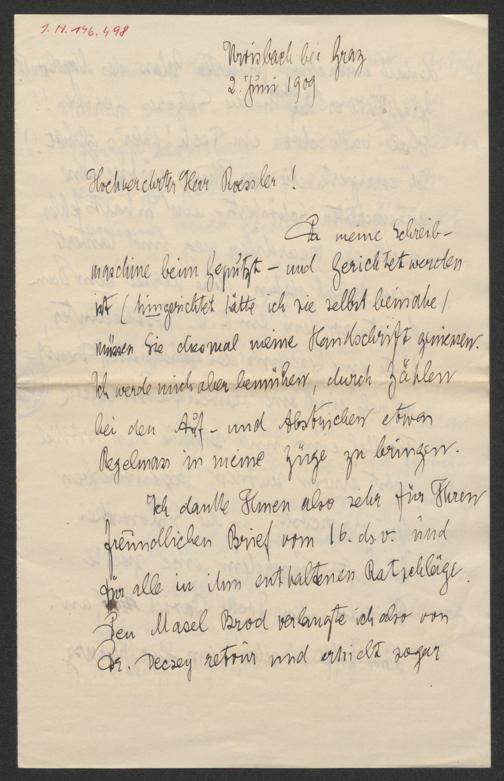 J. N. 146.498
Kroisbach bei Graz
2. Juni 1909
Hochverehrter Herr Roessler!
Da meine Schreib-
maschine beim Geputzt- und Gerichtetwerden
ist (hingerichtet hätte ich sie selbst beinahe)
müssen Sie diesmal meine Handschrift geniessen.
Ich werde mich aber bemühen, durch Zählen
bei den Auf- und Abstrichen etwas
Regelmass in meine Züge zu bringen.
Ich danke Ihnen also sehr für Ihren
freundlichen Brief vom 16. ds. v. und
für alle in ihm enthaltenen Ratschläge.
Den Masel Brod verlangte ich also von
Dr. Decsey retour und erhielt sogar